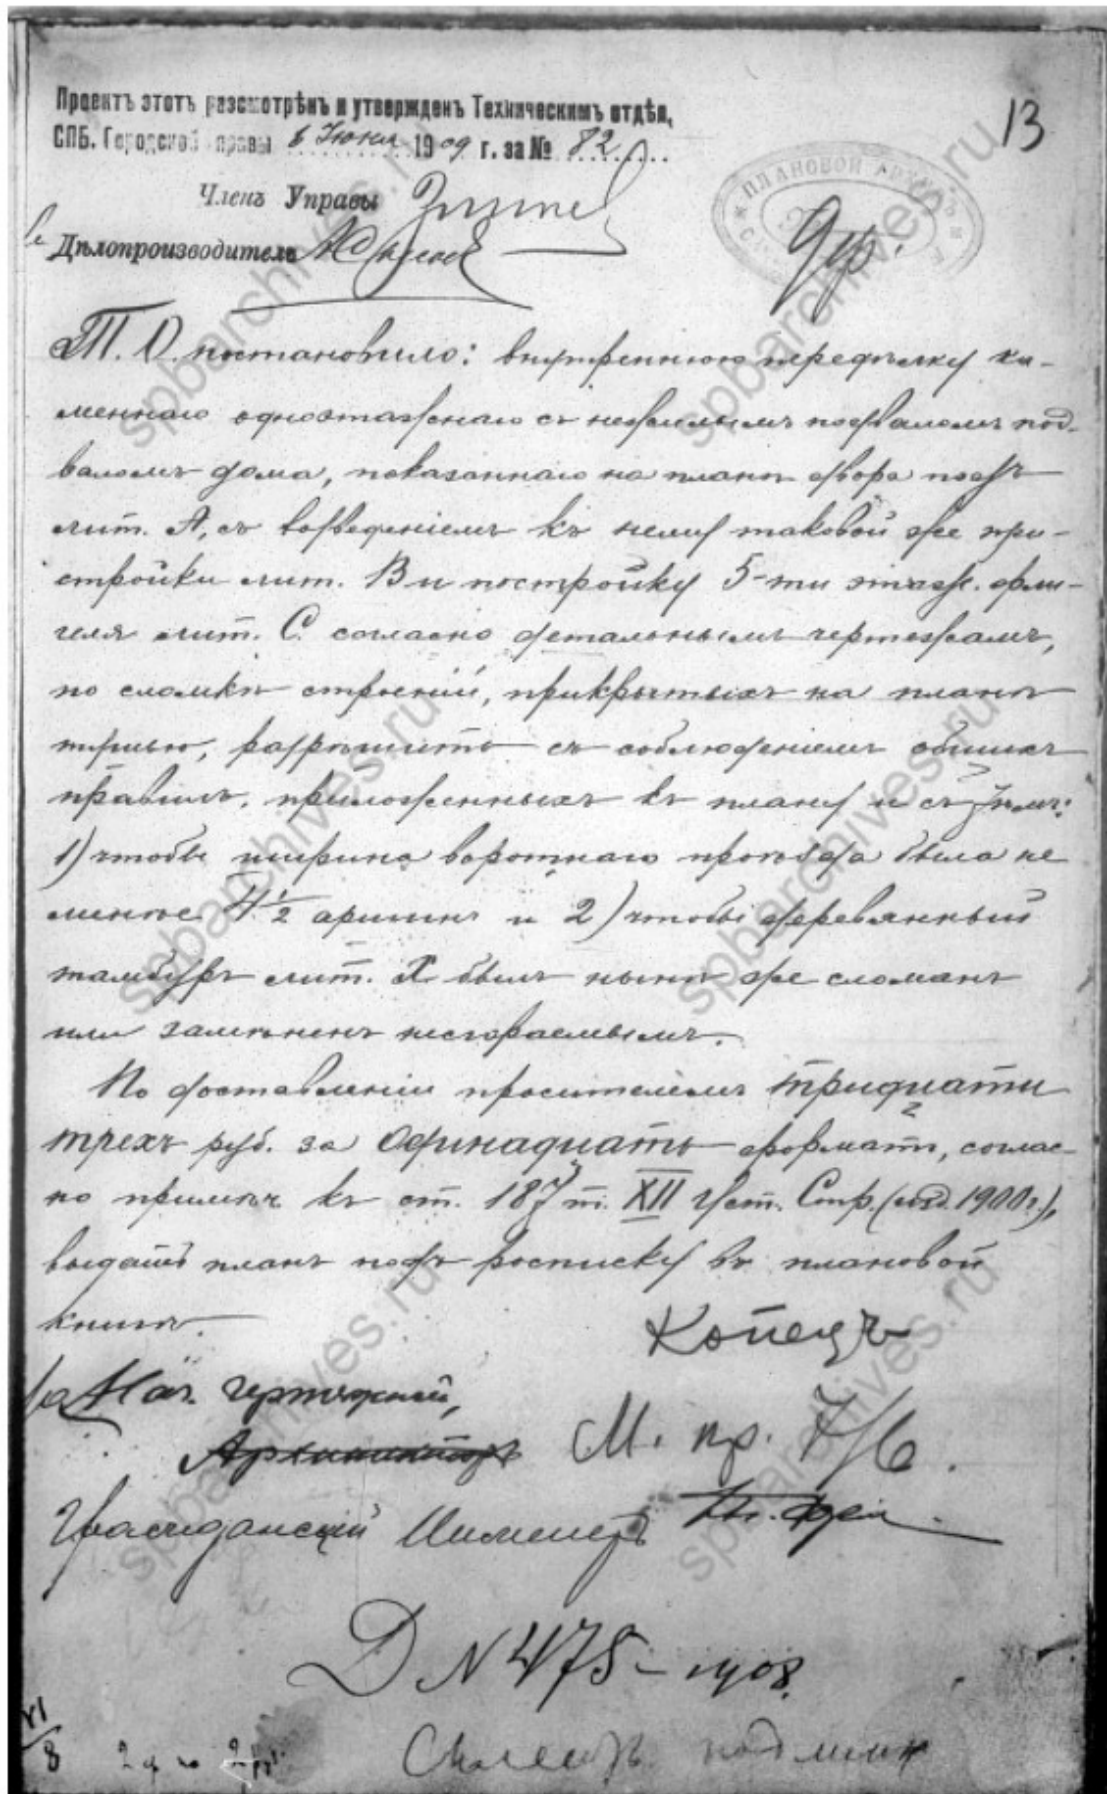 Проектъ этотъ разсмотрѣнъ и утвержденъ Техническимъ отдѣл.
СПБ. Городской правы 6 Июня 1909 г. за № 82
13
Членъ Управы
Дѣлопроизводитель
ПЛАНОВОЙ АРХИВЪ
Т. О. постановило: внутреннюю передѣлку ка-
меннаго одноэтажнаго съ нежилымъ подваломъ под-
валомъ дома, показаннаго на планѣ двора подъ
лит. А, съ возведеніемъ къ нему таковой же при-
стройки лит. В и постройку 5-ти этаж. фли-
геля лит. С. согласно детальнымъ чертежамъ,
по сломкѣ строеній, прикрытыхъ на планѣ
тушью, разрѣшить съ соблюденіемъ общихъ
правилъ, приложенныхъ къ плану и съ тѣмъ:
1) чтобы ширина воротнаго проѣзда была не
менѣе 4 1/2 аршинъ и 2) чтобы деревянный
тамбуръ лит. Х былъ нынѣ же сломанъ
или замѣненъ несгораемымъ.
По доставленіи просителемъ тридцати
трехъ руб. за одинадцать форматъ, соглас-
но примѣч. къ ст. 187 т. XII Уст. Стр. (изд. 1900 г.),
выдать планъ подъ росписку въ плановой
книгѣ.
Копецъ
за Нач. чертежной,
Архитекторъ М. пр. 7/6.
Гражданскій Инженеръ
Д N 478 - 1908.
VI
8